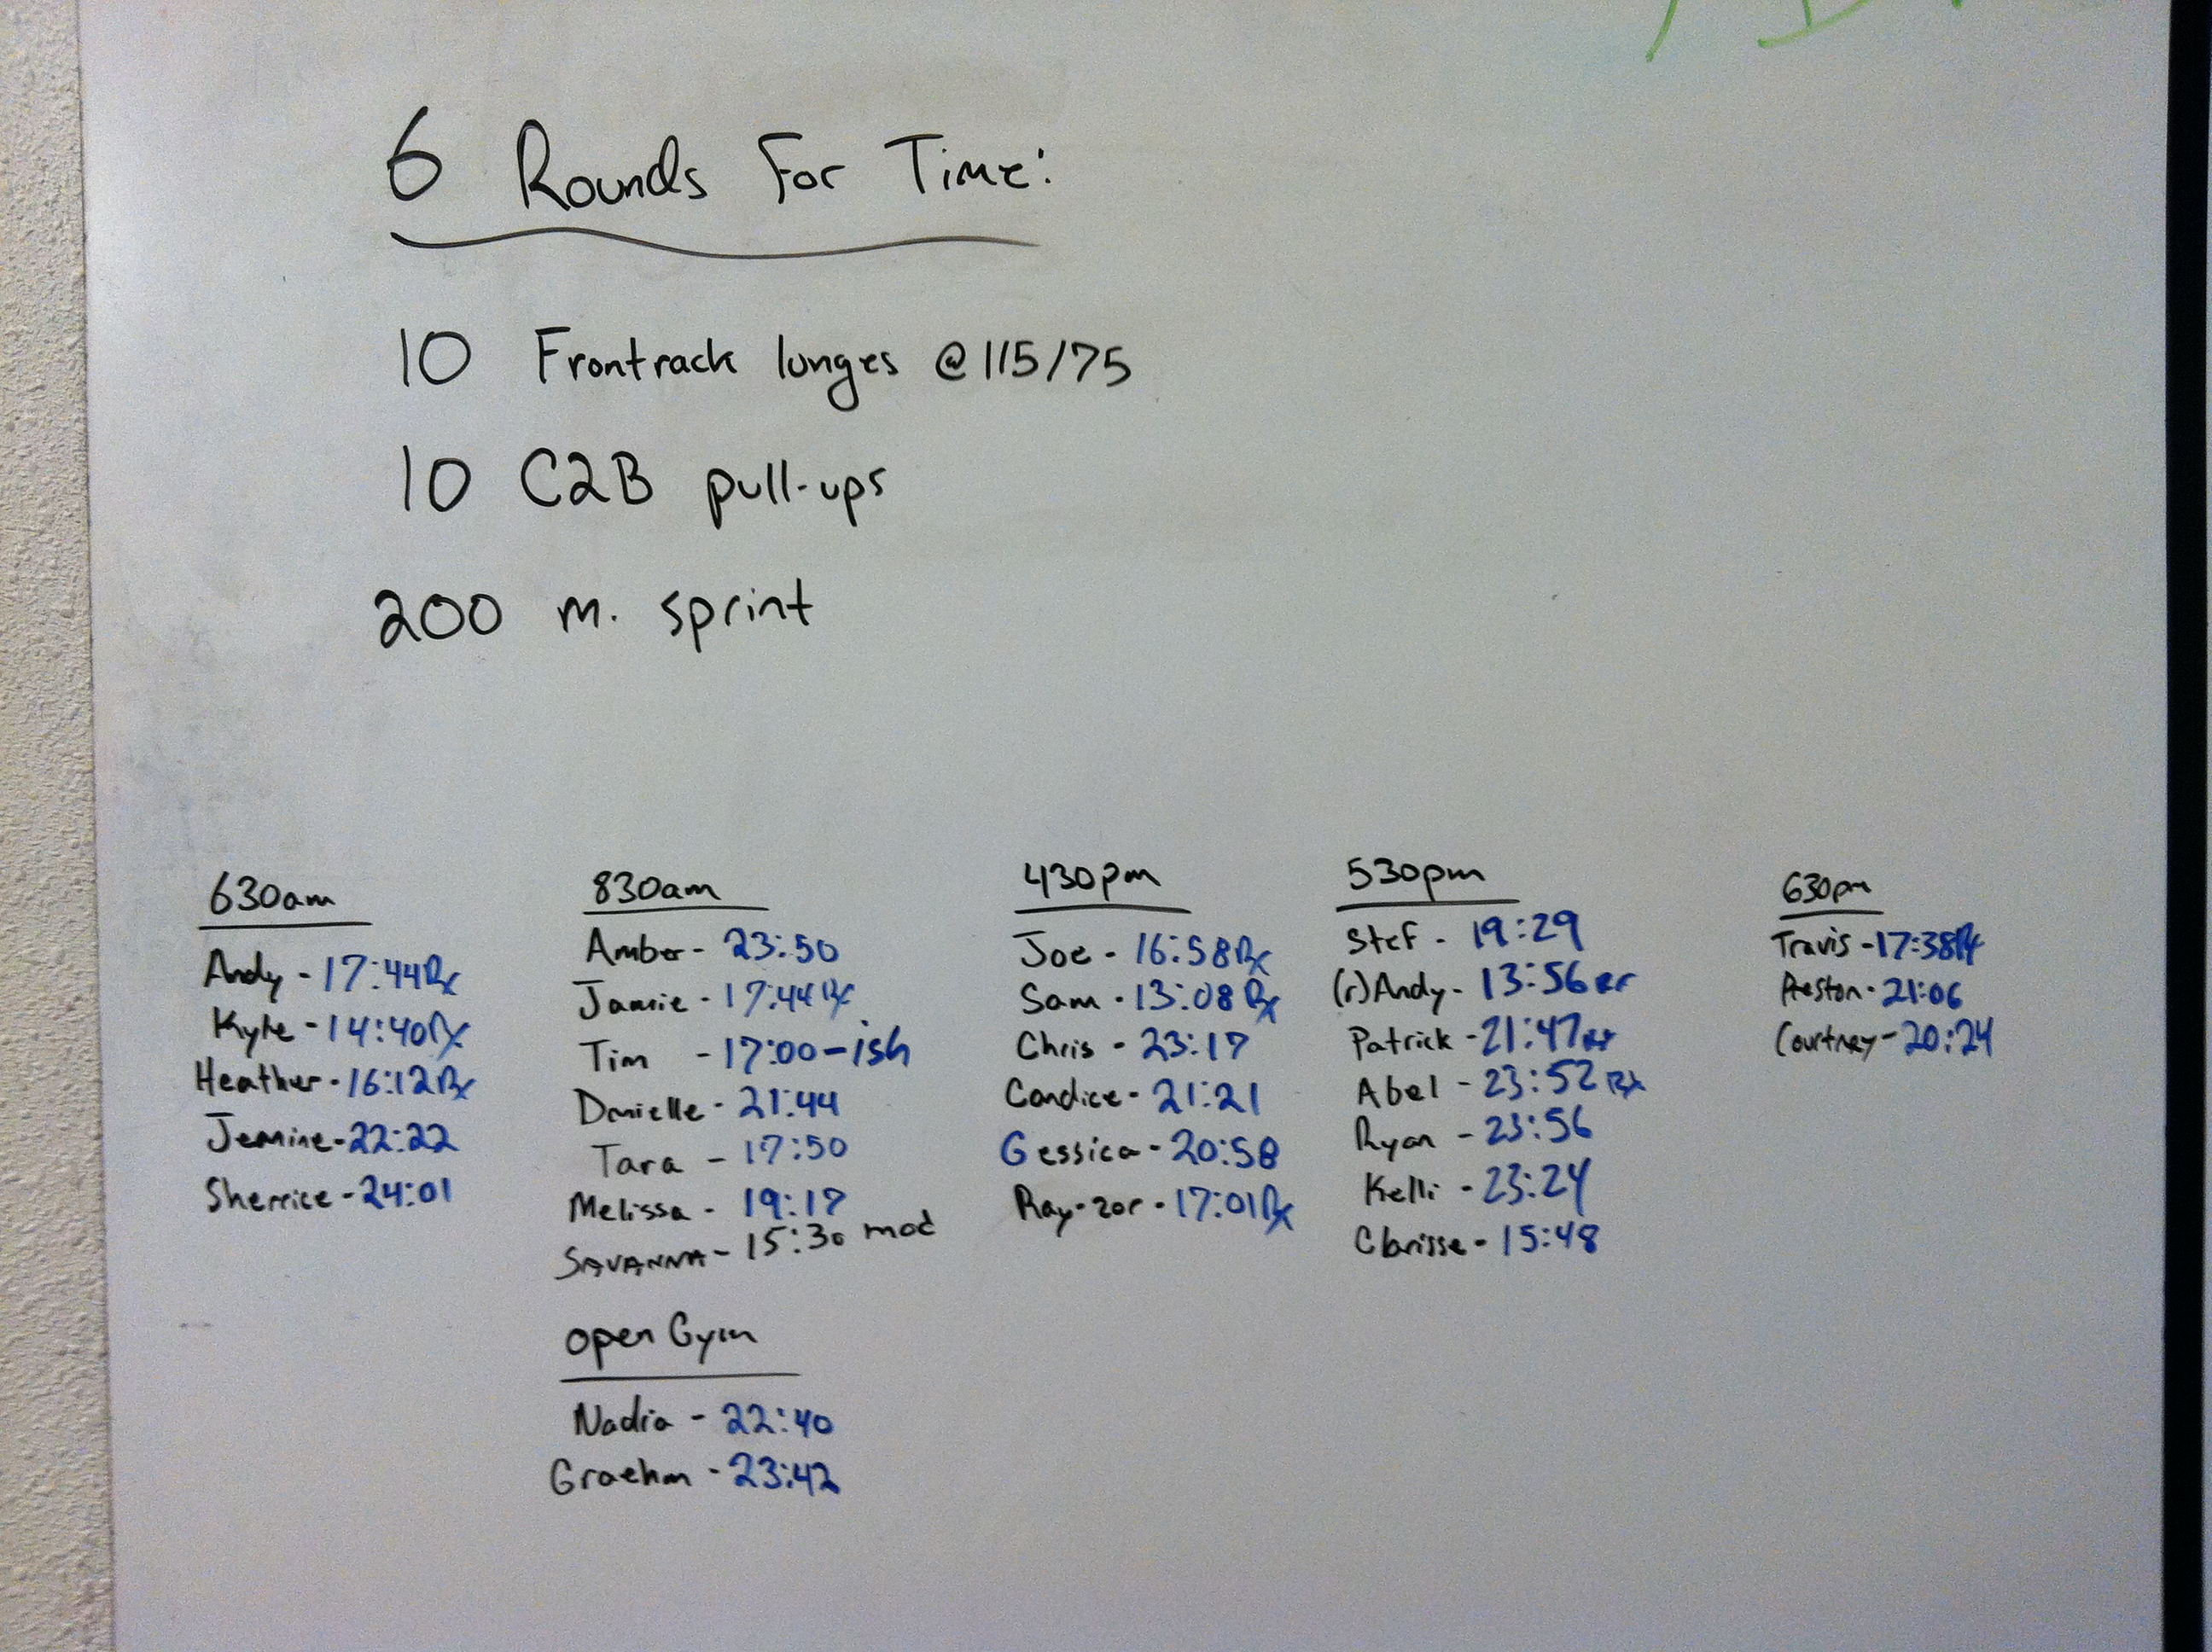 6 Rounds For Time:
10 Frontrack lunges @ 115/75
10 C2B pull-ups
200 m. sprint
630am
Andy - 17:44 Rx
Kyle - 14:40 Rx
Heather - 16:12 Rx
Jemine - 22:22
Sherrice - 24:01
830am
Amber - 23:50
Jamie - 17:44 Rx
Tim - 17:00-ish
Danielle - 21:44
Tara - 17:50
Melissa - 19:17
SAVANNA - 15:30 mod
open Gym
Nadia - 22:40
Graehm - 23:42
430pm
Joe - 16:58 Rx
Sam - 13:08 Rx
Chris - 23:17
Candice - 21:21
Gessica - 20:58
Ray-zor - 17:01 Rx
530pm
Stef - 19:29
(r)Andy - 13:56
Patrick - 21:47 Rx
Abel - 23:52 Rx
Ryan - 23:56
Kelli - 23:24
Clarisse - 15:48
630pm
Travis - 17:38 Rx
Preston - 21:06
Courtney - 20:24